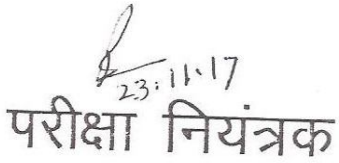 23.11.17
परीक्षा नियंत्रक